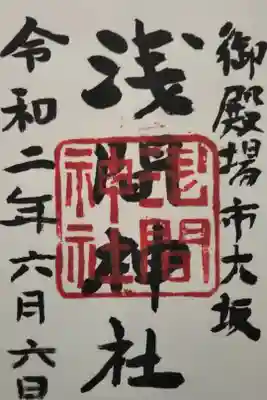 御殿場市大坂
浅間神社
令和二年六月六日
浅間
神社